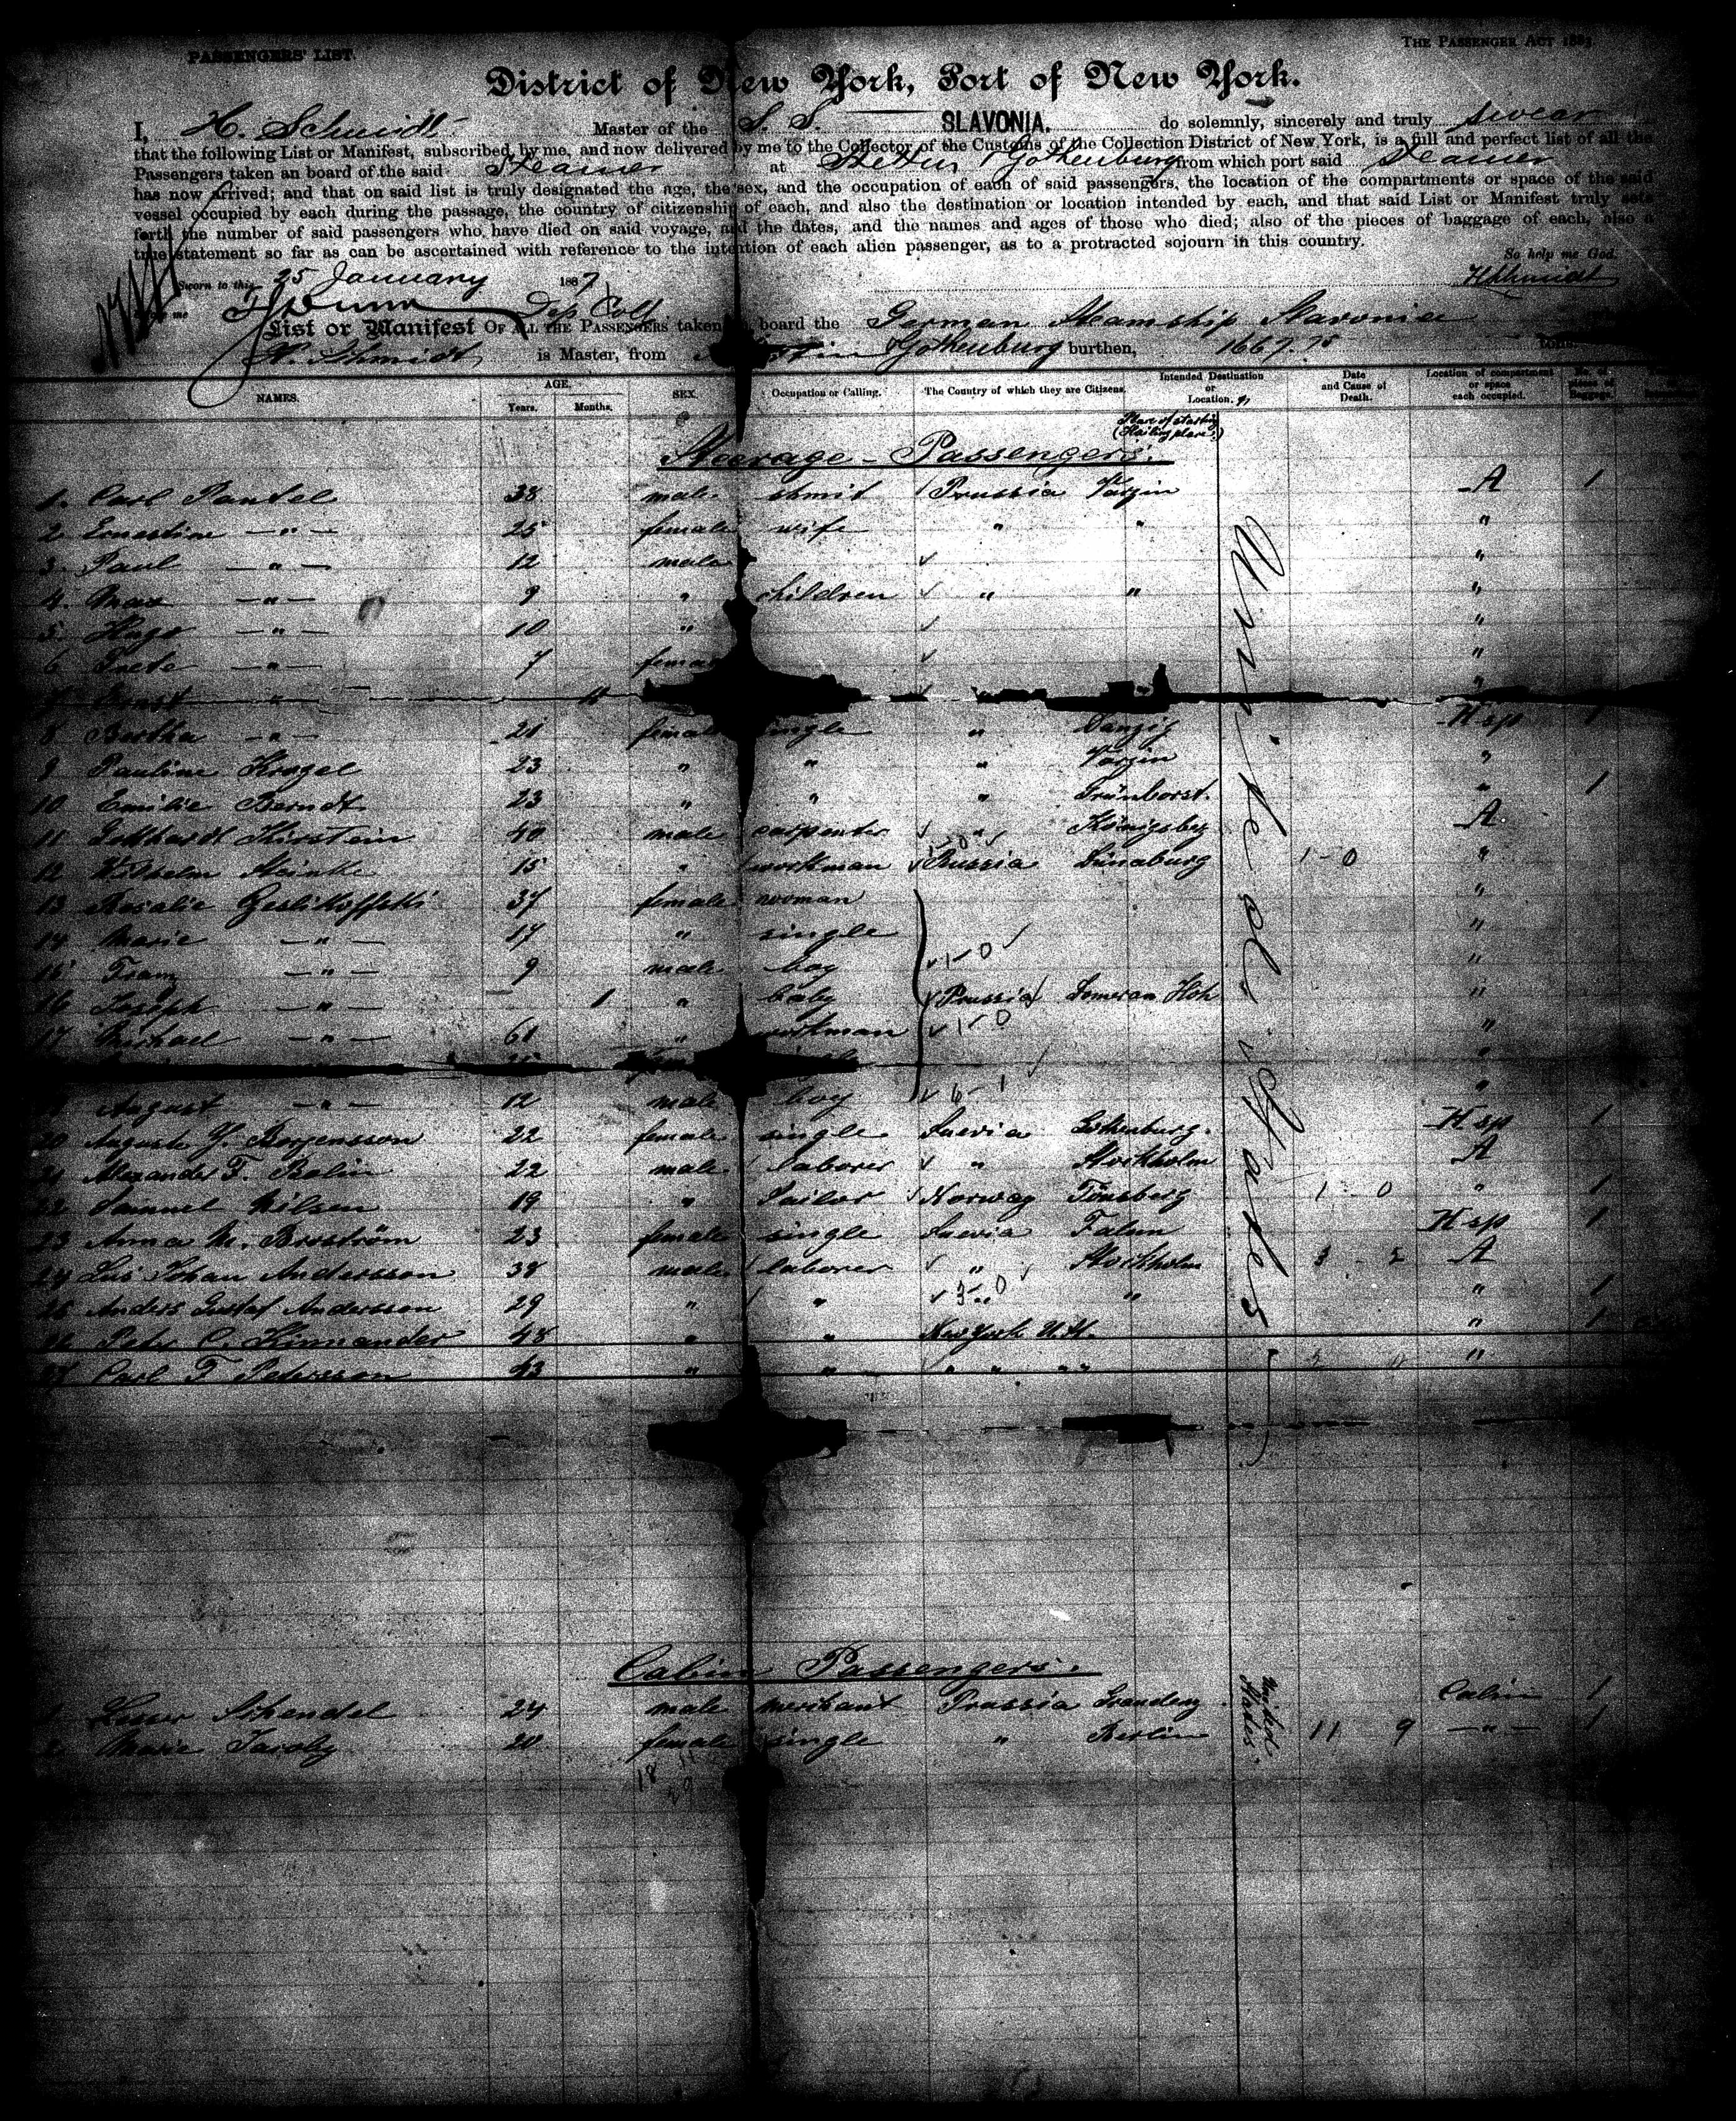 PASSENGERS' LIST.
THE PASSENGER ACT 1882
District of New York, Port of New York.
I, H. Schmidt Master of the S. S. SLAVONIA. do solemnly, sincerely and truly swear
that the following List or Manifest, subscribed by me, and now delivered by me to the Collector of the Customs of the Collection District of New York, is a full and perfect list of all the
Passengers taken an board of the said Steamer at Stettin / Gothenburg from which port said Steamer
has now arrived; and that on said list is truly designated the age, the sex, and the occupation of each of said passengers, the location of the compartments or space of the said
vessel occupied by each during the passage, the country of citizenship of each, and also the destination or location intended by each, and that said List or Manifest truly sets
forth the number of said passengers who have died on said voyage, and the dates, and the names and ages of those who died; also of the pieces of baggage of each, also a
true statement so far as can be ascertained with reference to the intention of each alien passenger, as to a protracted sojourn in this country.
So help me God.
Sworn to this 25 January 1887
HSchmidt
before me Dep Coll
List or Manifest OF ALL THE PASSENGERS taken on board the German Steamship Slavonia
H. Schmidt is Master, from Stettin Gothenburg burthen, 1667.75 tons
NAMES. AGE. Years. Months. SEX. Occupation or Calling. The Country of which they are Citizens. Intended Destination or Location. Date and Cause of Death. Location of compartment or space each occupied. No. of pieces of Baggage.
Place of starting
(Hailing place)
Steerage - Passengers.
1. Carl Pantel 38 male shmit Prussia Varzin A 1
2 Ernestine —"— 25 female wife " " "
3. Paul —"— 12 male "
4. Max —"— 9 " children " " "
5 Hugo —"— 10 " "
6 Grete —"— 7 female "
7 Ernst " 11 "
8 Bertha —"— 21 female single " Danzig H sp 1
9 Pauline Kragel 23 " " " Varzin "
10 Emilie Berndt 23 " " " Grünhorst. " 1
11 Kirstein 40 male carpenter " Königsbg A
12 Wilhelm Steinke 15 " workman Russia Dünaburg 1-0 "
13 Rosalie 37 female wooman "
14 Marie —"— 17 " single "
15 Franz —"— 9 male boy 1-0 "
16 Joseph —"— 1 " baby Prussia "
17 Michael —"— 61 " workman 1-0 "
19 August —"— 12 male boy 6-1 "
20 Auguste J. Borjensson 22 female single Suevia Gothenburg. H sp 1
21 Alexander F. Bolin 22 male laborer " Stockholm A
22 Samuel Nilsen 19 " Sailor Norway Tönsberg 1 0 " 1
23 Anna M. Broström 23 female single Suevia Falun H sp 1
24 Johan Andersson 38 male laborer " Stockholm 3 A
25 Anders Gustaf Andersson 29 " " 3-0 " " 1
26 Peter C. Kinnander 48 " " New York " 1
27 Carl F Petersson 43 " " " " "
United States
Cabin Passengers.
1 Lesser Schendel 24 male merchant Prussia Graudenz Cabin 1
2 Marie Jacoby 20 female single " Berlin 11 9 —"— 1
United States.
18 11
29